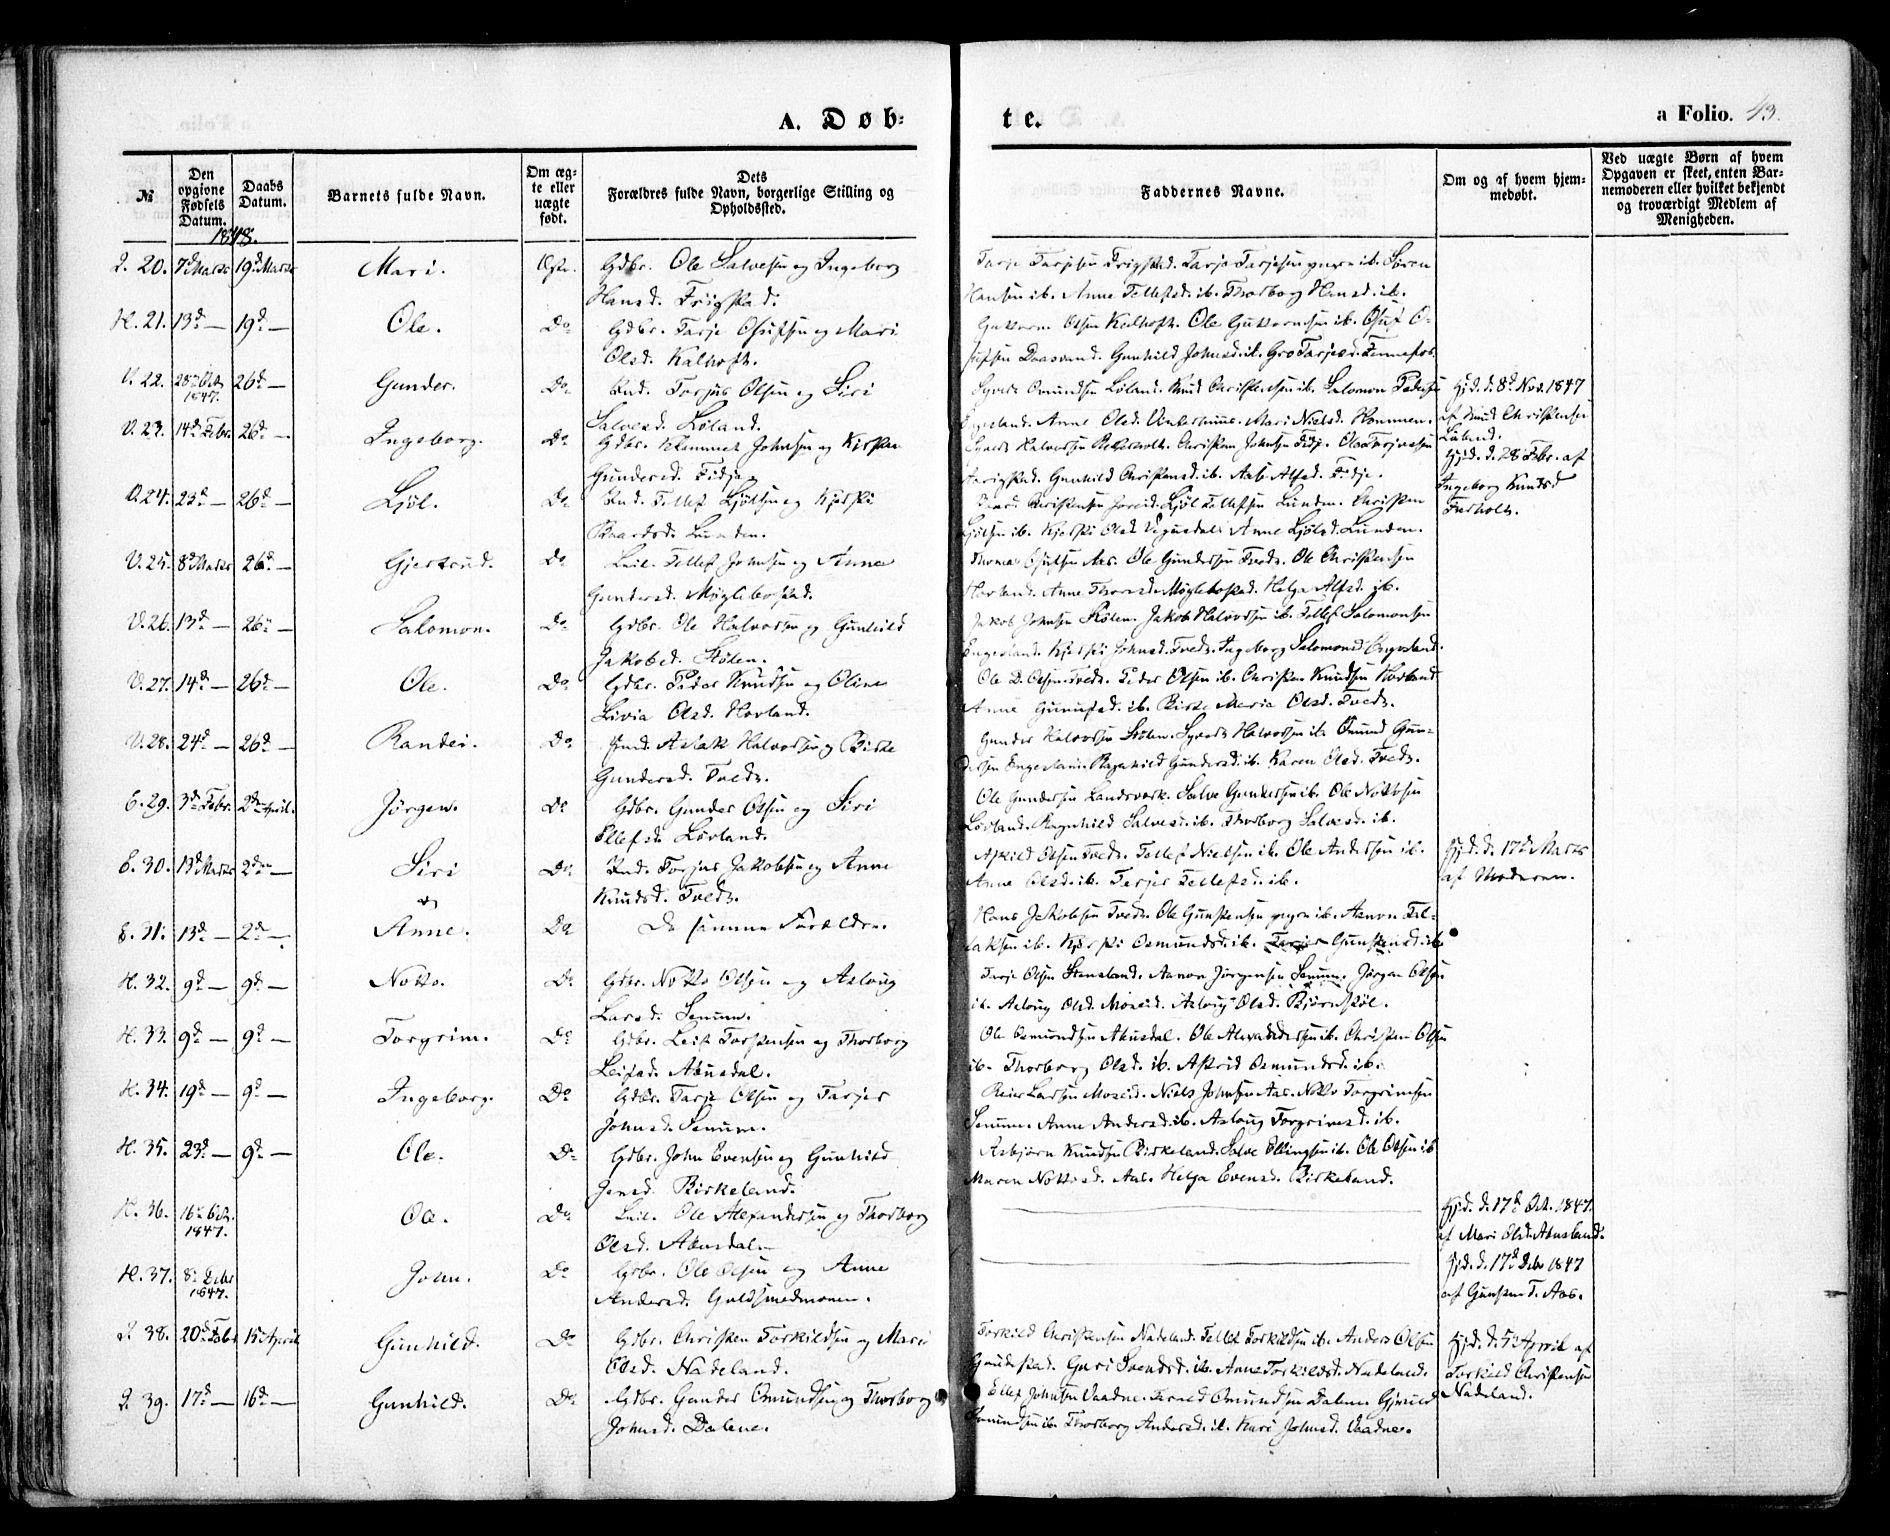 A. Døb=
te.
a Folio. 43.
№
Den opgivne Fødsels Datum.
Daabs Datum.
Barnets fulde Navn.
Om ægte eller uægte født.
Dets
Forældres fulde Navn, borgerlige Stilling og Opholdssted.
Faddernes Navne.
Om og af hvem hjemmedøbt.
Ved uægte Børn af hvem Opgaven er skeet, enten Barnemoderen eller hvilket bekjendt og troværdigt Medlem af Menigheden.
1848.
I. 20. 7d Marts 19d Marts Mari. Ægte. Gdbr. Ole Salvesen og Ingeborg
Hansd. Frigstad.
Tarje Tarjesen Frigstad. Tarje Tarjesen yngre ib. Søren
Hansen ib. Anne Tellefsd. ib. Thorborg Hansd. ib.
H. 21. 13d — 19d — Ole. Do Gdbr. Tarje Osufsen og Mari
Olsd. Kalhoft.
Guttorm Olsen Kalhoft. Ole Guttormsen ib. Osuf O-
sufsen Daasvand. Gunhild Johnsd. ib. Gro Tarjesd. Fennefos.
V. 22. 28de Oct. 1847. 26d — Gunder. Do Ind. Torjus Olsen og Siri
Salvesd. Løland.
Syvert Omundsen Løland. Knud Christensen ib. Salomon Pedersen
Engesland. Anne Olsd. Mari Nielsd. Hommen.
Hjd. d. 8d Nov. 1847
af Knud Christensen
Løland.
V. 23. 14d Febr. 26d — Ingeborg. Do Gdbr. Klemmet Johnsen og Kirsten
Gundersd. Fidje.
Syvert Halvorsen Christen Johnsen Fidje. Ole Torjussen
Gunhild Christensd. ib. Aase Alfsd. Fidje.
Hjd. d. 28 Febr. af
Ingeborg Knudsd
V. 24. 23d — 26d — Ljøl. Do Ind. Tellef Ljølsen og Kjersti
Baardsd. Lunden.
Christensen Ljøl Tellefsen Lunden. Christen
Ljølsen ib. Kjersti Olsd. Vegusdal. Anne Ljølsd. Lunden.
V. 25. 8d Marts 26d — Gjertrud. Do Leil. Tellef Johnsen og Anne
Gundersd. Møglebostad.
Thomas Osufsen Aas. Ole Gundersen Tveds. Ole Christensen
Hovland. Anne Thoresd. Møglebostad. Helga Alfsd. ib.
V. 26. 13d — 26d — Salomon. Do Gdbr. Ole Halvorsen og Gunhild
Jakobsd. Stølen.
Jakob Johnsen Stølen. Jakob Halvorsen ib. Tellef Salomonsen
Engesland. Kjersti Johnsd. Tveds. Ingeborg Salomonsd. Engesland.
V. 27. 14d — 26d — Ole. Do Gdbr. Peder Knudsen og Oline
Livia Olsd. Hovland.
Ole D. Olsen Tveds. Peder Olsen ib. Christen Knudsen Hovland
Anne ib. Birte Maria Olsd. Tveds.
V. 28. 24d — 26d — Randei. Do Ind. Aslak Halvorsen og Birte
Gundersd. Tveds.
Gunder Halvorsen Stølen. Syvert Halvorsen ib. Omund Gun-
dersen Engesland. Ragnhild Gundersd. ib. Karen Olsd. Tveds.
E. 29. 3d Febr. 2den April. Jørgen. Do Gdbr. Gunder Olsen og Siri
Ellefsd. Løvland.
Ole Gundersen Landsverk. Salve Gundersen ib. Ole Nottosen
Løvland. Ragnhild Salvesd. ib. Thorborg Salvesd. ib.
E. 30. 13d Marts 2den — Siri Do Ind. Torjus Jakobsen og Anne
Knudsd. Tveds.
Askild Olsen Tveds. Tellef Nielsen ib. Ole Andersen ib.
Anne Olsd. ib. Tarjer Tellefsd. ib.
Hjd. d. 17d Marts
af Moderen.
og
E. 31. 13d — 2d — Anne. Do De samme Forældre.
Hans Jakobsen Tveds. Ole Gunstensen yngre ib. Aanon
ib. Kjersti Osmundsd. ib. Gunstensd. ib.
H. 32. 9d — 9d — Notto. Do Gdbr. Notto Olsen og Aslaug
Larsd. Senum.
Tarje Olsen Stensland. Aanon Jørgensen Senum. Jørgen Olsen
ib. Aslaug Olsd. Moseid. Aslaug Olsd. Bjørnstøl.
H. 33. 9d — 9d — Torgrim. Do Gdbr. Leif Torstensen og Thorborg
Leifsd. Aausdal.
Ole Osmundsen Aausdal. Ole Alexandersen ib. Christen Olsen
ib. Thorborg Olsd. ib. Astrid Osmundsd. ib.
H. 34. 19d — 9d — Ingeborg. Do Gdbr. Tarje Olsen og Tarjer
Johnsd. Senum.
Reier Larsen Moseid. Niels Johnsen Aas. Notto Torgrimsen
Senum. Anne Andersd. ib. Aslaug Torgrimsd. ib.
H. 35. 23d — 9d — Ole. Do Gdbr. John Evensen og Gunhild
Jensd. Birkeland.
Asbjørn Knudsen Birkeland. Salve Ellingsen ib. Ole Olsen ib.
Maren Nottosd. Aas. Helga Evensd. Birkeland.
H. 36. 16de Oct. 1847. Ole. Do Leil. Ole Alexandersen og Thorborg
Olsd. Aausdal.
Hjd. d. 17d Oct. 1847.
af Mari Olsd. Aausland.
H. 37. 8de Debr 1847. John. Do Gdbr. Ole Olsen og Anne
Andersd. Guldsmedmoen.
Hjd. d. 17d Debr 1847
af Gunsten T. Aas.
I. 38. 20d Febr 15 April Gunhild. Do Gdbr. Christen Torkildsen og Mari
Olsd. Nådeland.
Torkild Christensen Nådeland. Tellef Torkildsen ib. Anders Olsen
Guri Svendsd. ib. Anne Torkildsd. Nådeland.
Hjd. d. 5 April af
Torkild Christensen
Nådeland.
I. 39. 17d — 16d — Gunhild. Do Gdbr. Gunder Omundsen og Thorborg
Johnsd. Dalene.
Ellef Johnsen Vaadne. Omundsen Dalene.
Omundsen ib. Thorborg Andersd. ib. Kari Johnsd. Vaadne.